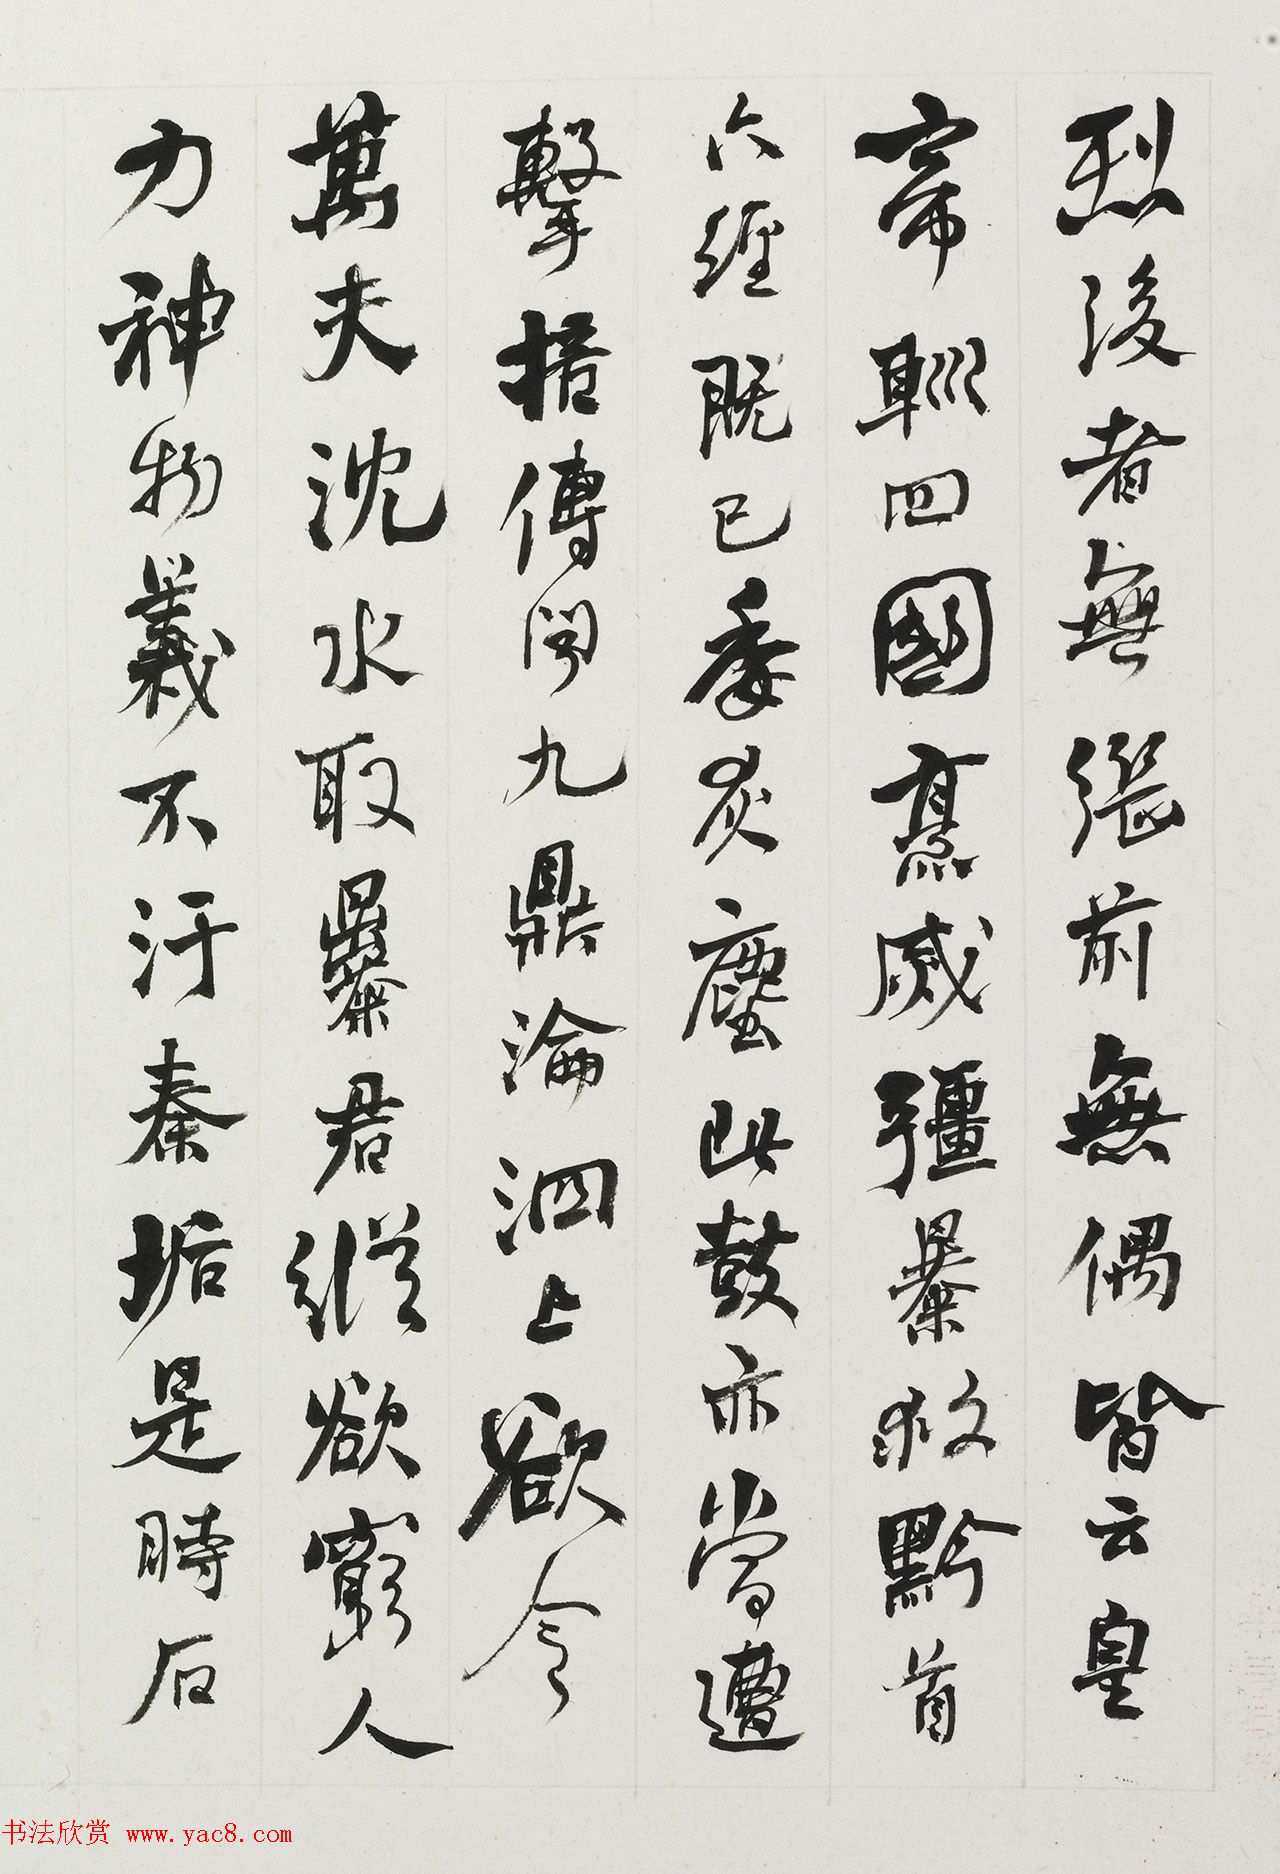 烈後者無繼前無偶皆云皇
帝四國烹烕彊暴救黔首
六經既已委灰塵此鼓亦當遭
擊掊傳聞九鼎淪泗上欲令
萬夫沈水取暴君縱欲窮人
力神物義不汙秦垢是時石
书法欣赏 www.yac8.com